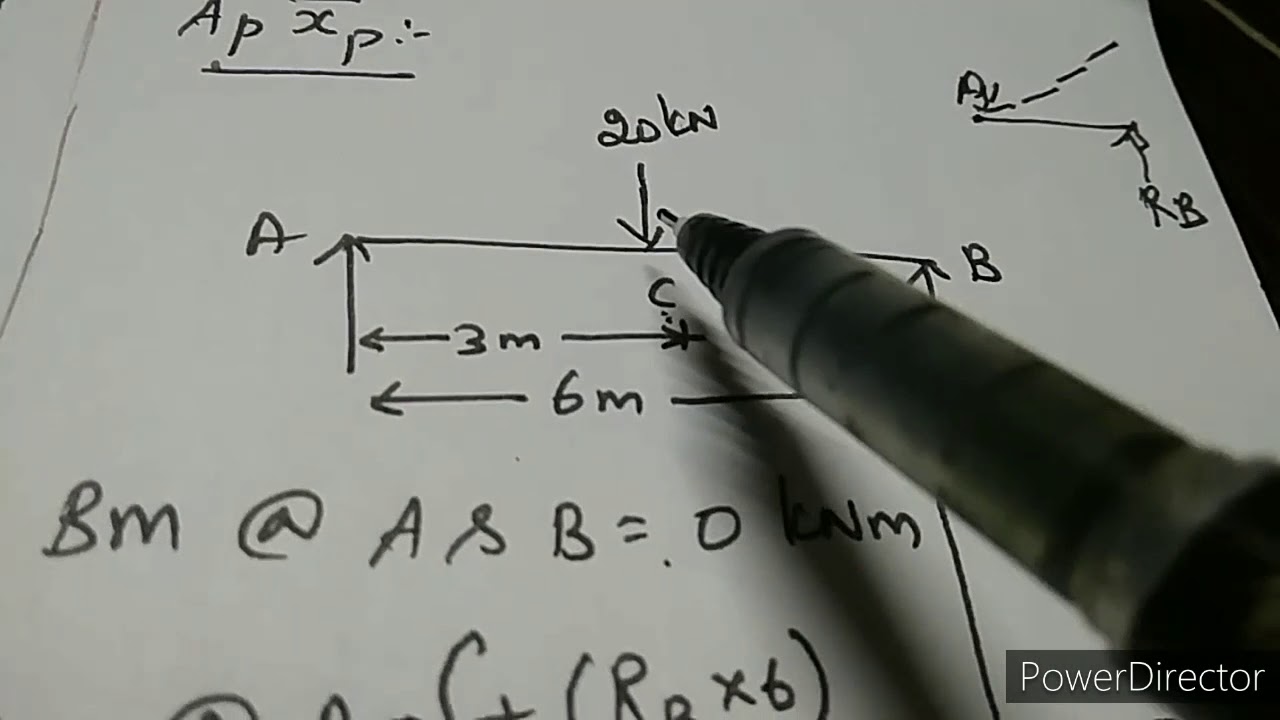 Ap x̄p :-
20kN
A
RB
A
B
C
3m
6m
Bm @ A & B = 0 kNm
(+ (RB × 6)
PowerDirector